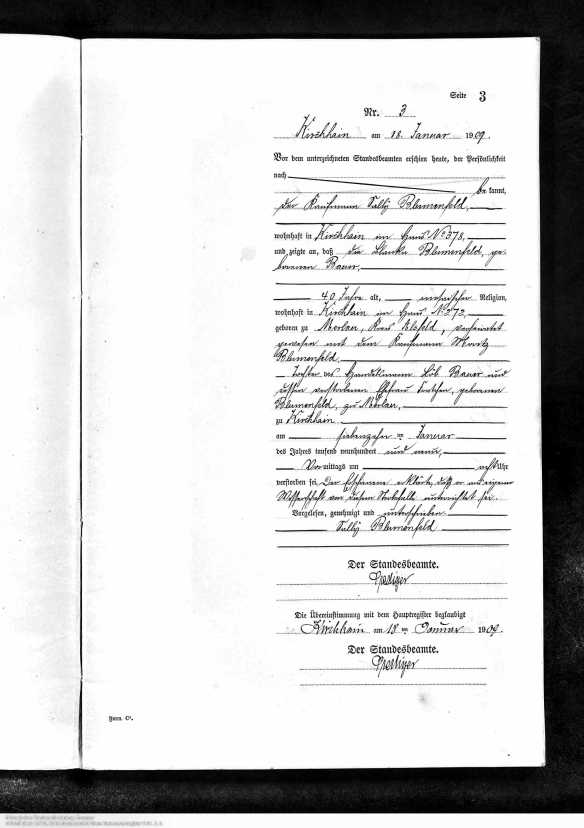 Seite 3
Nr. 3
Kirchhain am 18. Januar 1909.
Vor dem unterzeichneten Standesbeamten erschien heute, der Persönlichkeit
nach
bekannt,
der Kaufmann Sally Blumenfeld,
wohnhaft in Kirchhain im Haus No 378,
und zeigte an, daß die Blanka Blumenfeld, ge-
borenen Bauer,
40 Jahre alt, mosaischer Religion,
wohnhaft in Kirchhain im Haus No 272,
geboren zu Merlau, Kreis, verheiratet
gewesen mit dem Kaufmann Moritz
Blumenfeld
Tochter des Handelsmann Löb Bauer und
dessen verstorbenen Ehefrau, geborenen
Blumenfeld, zu Merlau,
zu Kirchhain
am siebenzehn ten Januar
des Jahres tausend neunhundert und neun,
Vormittags um acht Uhr
verstorben sei. Der Erschienene erklärte, daß er aus eigener
Wissenschaft von diesem Sterbefalle unterrichtet sei.
Vorgelesen, genehmigt und unterschrieben
Sally Blumenfeld
Der Standesbeamte.
Die Übereinstimmung mit dem Hauptregister beglaubigt
Kirchhain am 18 ten Januar 1909.
Der Standesbeamte.
Form. C¹.